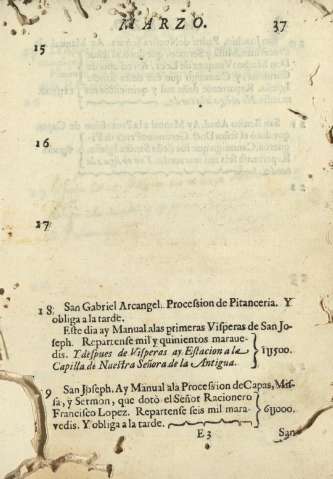 MARZO. 37
15
16
17
18 San Gabriel Arcangel. Procession de Pitanceria. Y
obliga a la tarde.
Este dia ay Manual alas primeras Visperas de San Jo-
seph. Repartense mil y quinientos maraue-
dis. Y despues de Visperas ay Estacion a la
Capilla de Nuestra Señora de la Antigua. 1U500.
9 San Joseph. Ay Manual ala Procession de Capas, Mis-
sa, y Sermon, que dotò el Señor Racionero
Francisco Lopez. Repartense seis mil mara-
vedis. Y obliga a la tarde. 6U000.
E 3 San